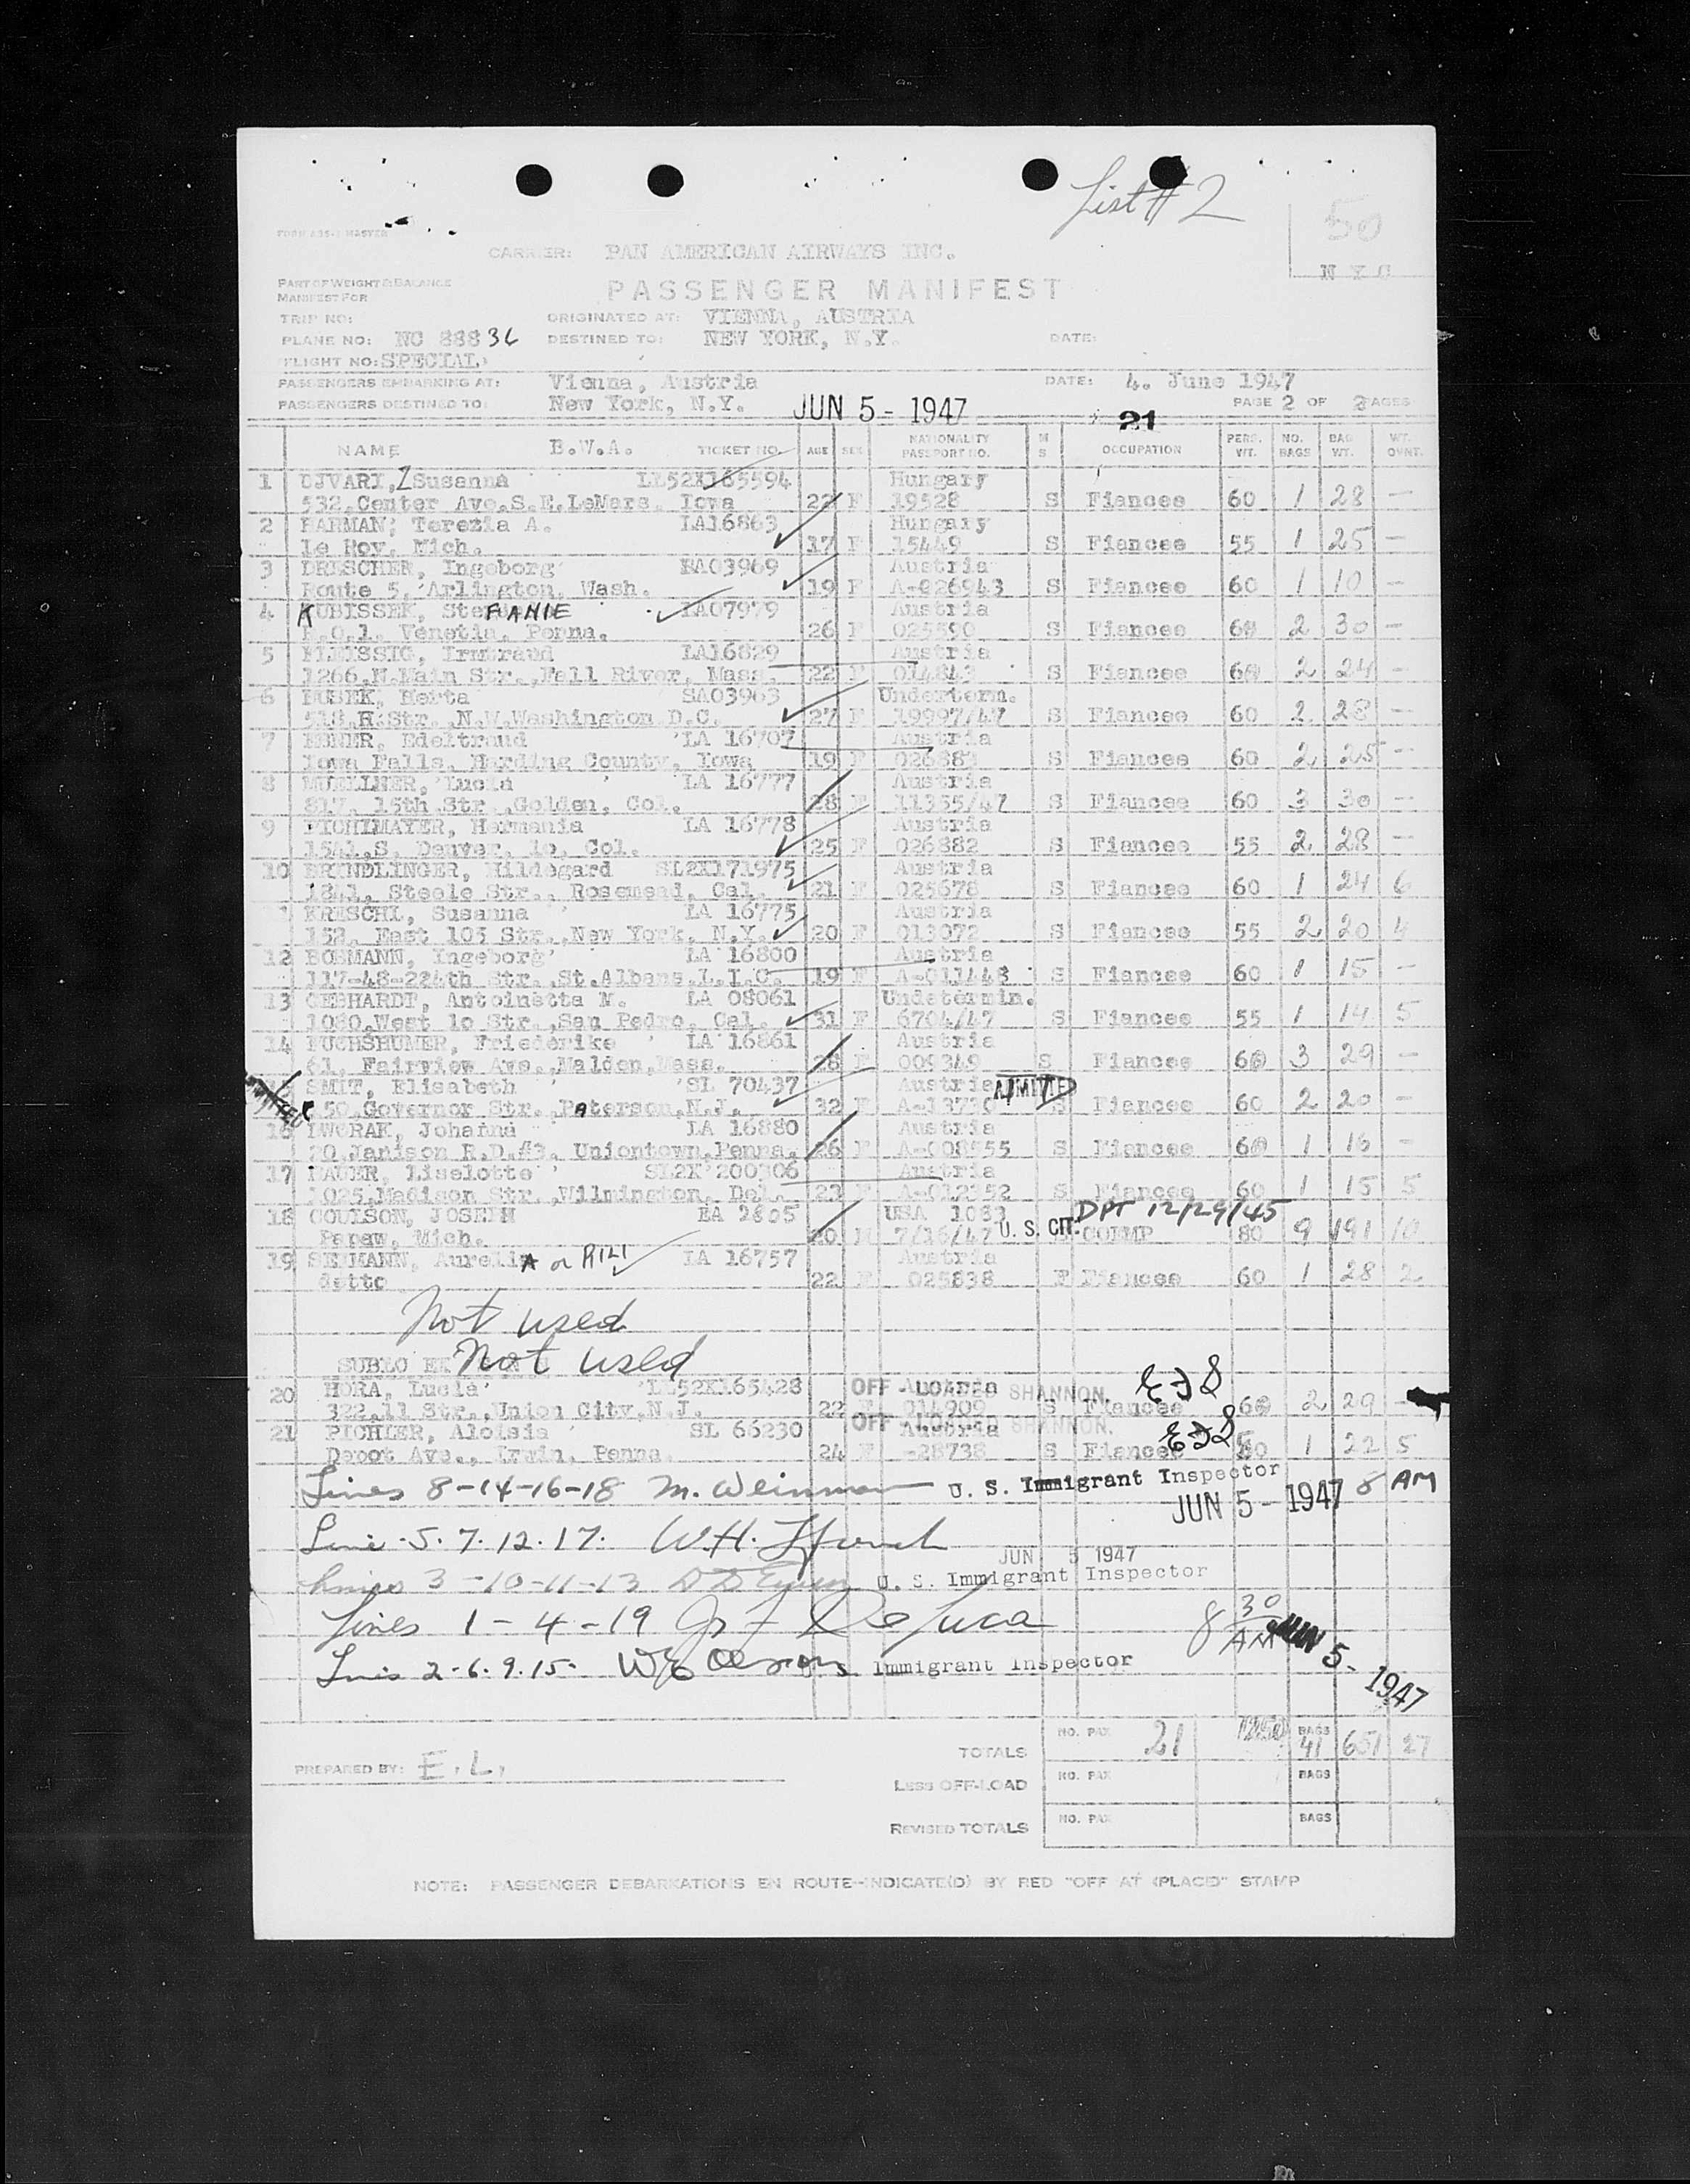 List # 2
50
N Y C
CARRIER: PAN AMERICAN AIRWAYS INC.
PART OF WEIGHT & BALANCE
MANIFEST FOR
PASSENGER MANIFEST
TRIP NO:
ORIGINATED AT: VIENNA, AUSTRIA
PLANE NO: NC 88836 DESTINED TO: NEW YORK, N.Y. DATE:
FLIGHT NO: SPECIAL
PASSENGERS EMBARKING AT: Vienna, Austria DATE: 4. June 1947
PASSENGERS DESTINED TO: New York, N.Y. JUN 5 - 1947 PAGE 2 OF PAGES
21
NAME B.W.A. TICKET NO. AGE SEX NATIONALITY PASSPORT NO. M S OCCUPATION PERS. WT. NO. BAGS BAG WT. WT. OVWT.
1 UJVARI, Susanna LL52X165594 Hungary
532, Center Ave.S.E.LeMars. Iowa 22 F 19528 S Fiancee 60 1 28 -
2 Terezia A. LA16863 Hungary
Le Roy, Mich. 17 F 15449 S Fiancee 55 1 25 -
3 DRESCHER, Ingeborg 03969 Austria
Route 5, Arlington, Wash. 19 F A-026943 S Fiancee 60 1 10 -
4 KUBISSEK, Ste FANIE LA07979 Austria
Venetia, Penna. 26 F 025590 S Fiancee 60 2 30 -
5 FLEISSIG, Irmtraud LA16829 Austria
1266,N.Main Str.,Fall River, Mass. 22 F 014843 S Fiancee 60 2 24 -
6 Herta SA03963 Undeterm.
518,R.Str.,N.W.Washington D.C. 27 F 19997/47 S Fiancee 60 2 28 -
7 EBNER, Edeltraud LA 16707 Austria
Iowa Falls, Harding County, Iowa 19 F S Fiancee 60 2 25 -
8 MUELLNER, Lucia LA 16777 Austria
817, 15th Str.,Golden, Col. 28 F 11355/47 S Fiancee 60 3 30 -
9 PICHLMAYER, Hermania LA 16778 Austria
1541,S. Denver, 10, Col. 25 F 026882 S Fiancee 55 2 28 -
10 BRINDLINGER, Hildegard SL2X171975 Austria
1241, Steele Str., Rosemead, Cal. 21 F 025678 S Fiancee 60 1 24 6
KRISCHL, Susanna LA 16775 Austria
152, East 105 Str.,New York, N.Y. 20 F 013072 S Fiancee 55 2 20 4
12 Ingeborg LA 16800 Austria
117-48-224th Str.,St.Albans,L.I.C. 19 F A-011448 S Fiancee 60 1 15 -
13 GEBHARDT, Antoinetta M. LA 08061 Undetermin.
1080,West 10 Str.,San Pedro, Cal. 31 F 6704/47 S Fiancee 55 1 14 5
14 FUCHSHUMER, Friederike LA 16861 Austria
61, Fairview Ave.,Malden,Mass. 28 F 009349 S Fiancee 60 3 29 -
SMIT, Elisabeth SL 70437 Austria ADMITTED
50,Governor Str., Paterson,N.J. 32 F A-13730 S Fiancee 60 2 20 -
16 DWORAK, Johanna LA 16880 Austria
20,Janison R.D.#3, Uniontown,Penna. 26 F A-008555 S Fiancee 60 1 16 -
17 BAUER, Liselotte SL2X 200306 Austria
1025,Madison Str.,Wilmington, Del. 23 F A-012352 S Fiancee 60 1 15 5
18 COULSON, JOSEPH EA 2805 USA 1083 DPT 12/29/45
Papaw, Mich. 20 M 7/16/47 U. S. CIT. COEMP 80 9 191 10
19 SEEMANN, Aurelia A or RILI LA 16757 Austria
detto 22 F 025838 F Fiancee 60 1 28 2
Not used
Not used
20 HORA, Lucia LL52X165428 OFF-LOADED SHANNON.
322,11 Str.,Union City,N.J. 22 F 014909 S Fiancee 60 2 29 -
21 PICHLER, Aloisia SL 66230 OFF-LOADED SHANNON. Austria
Depot Ave., Irwin, Penna. 24 F -28738 S Fiancee 60 1 22 5
Lines 8-14-16-18 M. Weinman U. S. Immigrant Inspector
JUN 5 - 1947 8 AM
Line 5.7.12.17. W.H.
JUN 5 1947
Lines 3-10-11-13 U. S. Immigrant Inspector
Lines 1-4-19 De Luca 8 30 AM
JUN 5 - 1947
Lines 2.6.9.15 Immigrant Inspector
TOTALS NO. PAX 21 1250 BAGS 41 651 27
PREPARED BY: E.L.
LESS OFF-LOAD NO. PAX BAGS
REVISED TOTALS NO. PAX BAGS
NOTE: PASSENGER DEBARKATIONS EN ROUTE-INDICATE(D) BY RED "OFF AT (PLACE)" STAMP